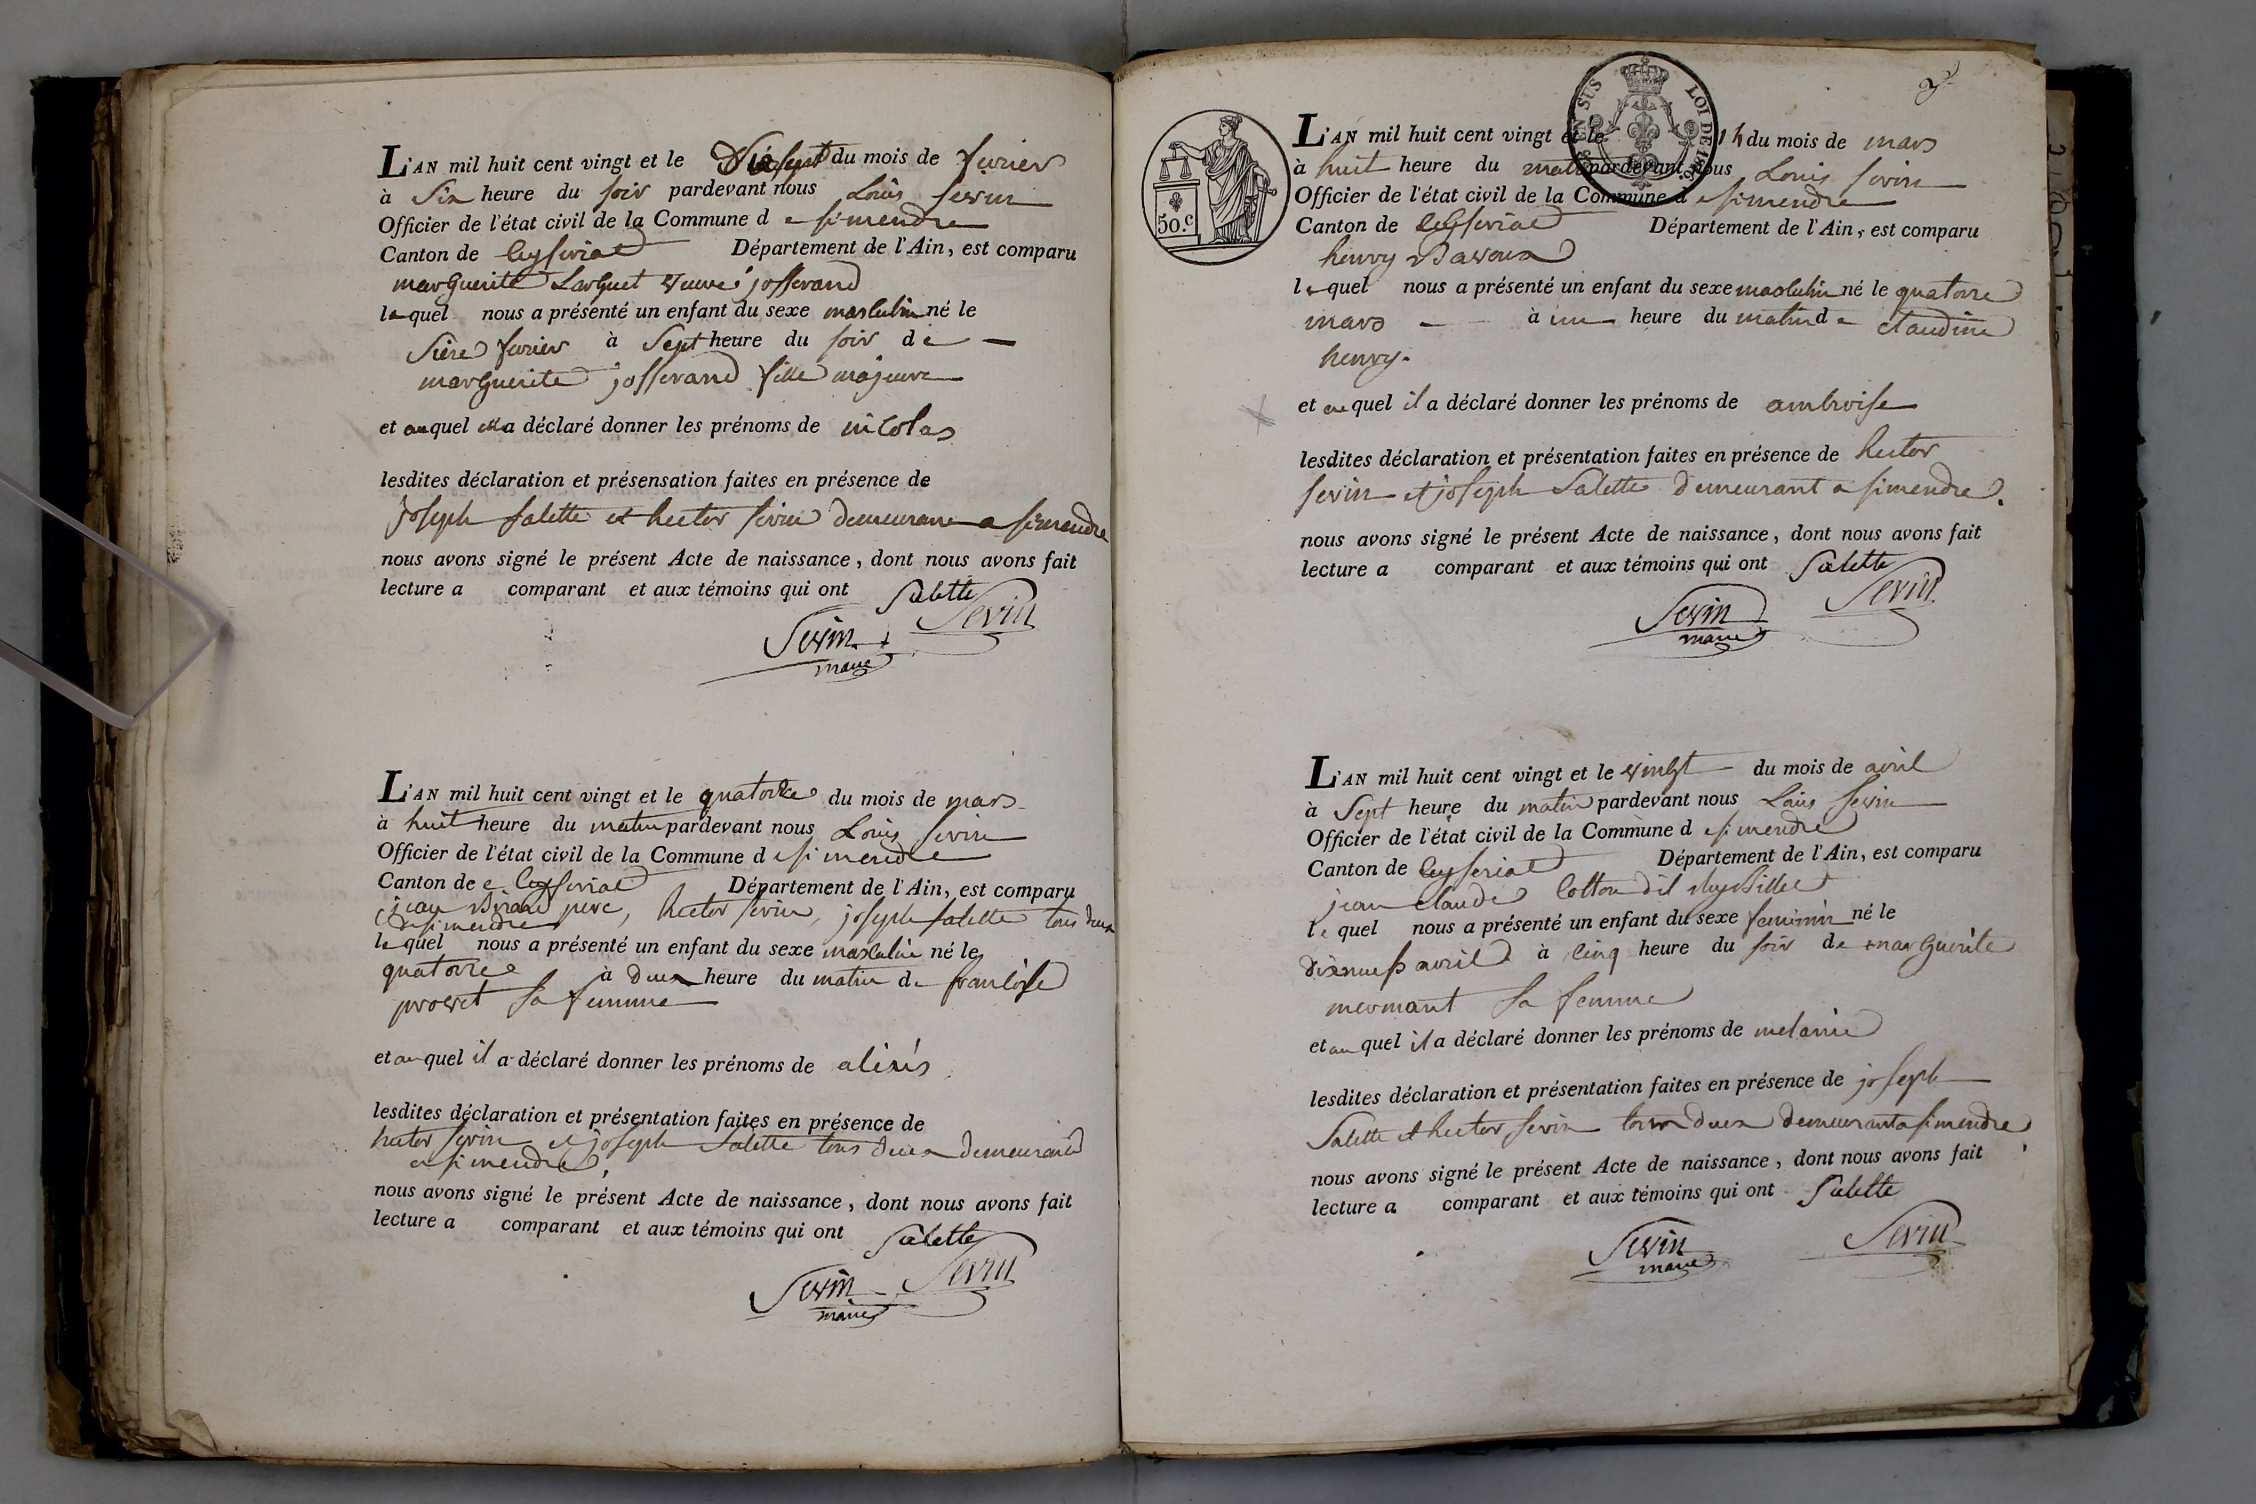 L'AN mil huit cent vingt et le dixsept du mois de fevrier
à Six heure du soir pardevant nous Louis sevin
Officier de l'état civil de la Commune d e simendre
Canton de Ceyseriat Département de l'Ain, est comparu
marguerite Larguet veuve josserand
laquel nous a présenté un enfant du sexe masculin né le
Sieze fevrier à Sept heure du soir de
marguerite josserand fille majeure
et auquel elle a déclaré donner les prénoms de nicolas
lesdites déclaration et présensation faites en présence de
joseph Salette et hector sevin demeurant a simendre
nous avons signé le présent Acte de naissance, dont nous avons fait
lecture a comparant et aux témoins qui ont Salette
Sevin
Sevin
maire
L'AN mil huit cent vingt et le quatorze du mois de mars
à huit heure du matin pardevant nous Louis sevin
Officier de l'état civil de la Commune d e simendre
Canton de Ceyseriat Département de l'Ain, est comparu
jean pere, hector sevin, joseph salette tous deux
de simendre
le quel nous a présenté un enfant du sexe masculin né le
quatorze à deux heure du matin de francoise
provet sa femme
et au quel il a déclaré donner les prénoms de alexis
lesdites déclaration et présentation faites en présence de
hector sevin et joseph Salette tous deux demeurant
a simendre,
nous avons signé le présent Acte de naissance, dont nous avons fait
lecture a comparant et aux témoins qui ont Salette
Sevin
Sevin
maire
2
EN SUS LOI DE 1816
50.C
L'AN mil huit cent vingt et le 14 du mois de mars
à huit heure du matin pardevant nous Louis sevin
Officier de l'état civil de la Commune d e simendre
Canton de Ceyseriat Département de l'Ain, est comparu
henry Bavoux
le quel nous a présenté un enfant du sexe masculin né le quatorze
mars à une heure du matin de claudine
henry.
et au quel il a déclaré donner les prénoms de ambroise
lesdites déclaration et présentation faites en présence de hector
sevin et joseph Salette demeurant a simendre.
nous avons signé le présent Acte de naissance, dont nous avons fait
lecture a comparant et aux témoins qui ont Salette
Sevin
Sevin
maire
L'AN mil huit cent vingt et le vingt du mois de avril
à Sept heure du matin pardevant nous Louis sevin
Officier de l'état civil de la Commune d e simendre
Canton de Ceyseriat Département de l'Ain, est comparu
jean claude Cotton dit
le quel nous a présenté un enfant du sexe feminin né le
dixneuf avril à cinq heure du soir de marguerite
mermant sa femme
et au quel il a déclaré donner les prénoms de melanie
lesdites déclaration et présentation faites en présence de joseph
Salette et hector sevin tous deux demeurant a simendre
nous avons signé le présent Acte de naissance, dont nous avons fait
lecture a comparant et aux témoins qui ont Salette
Sevin
Sevin
maire